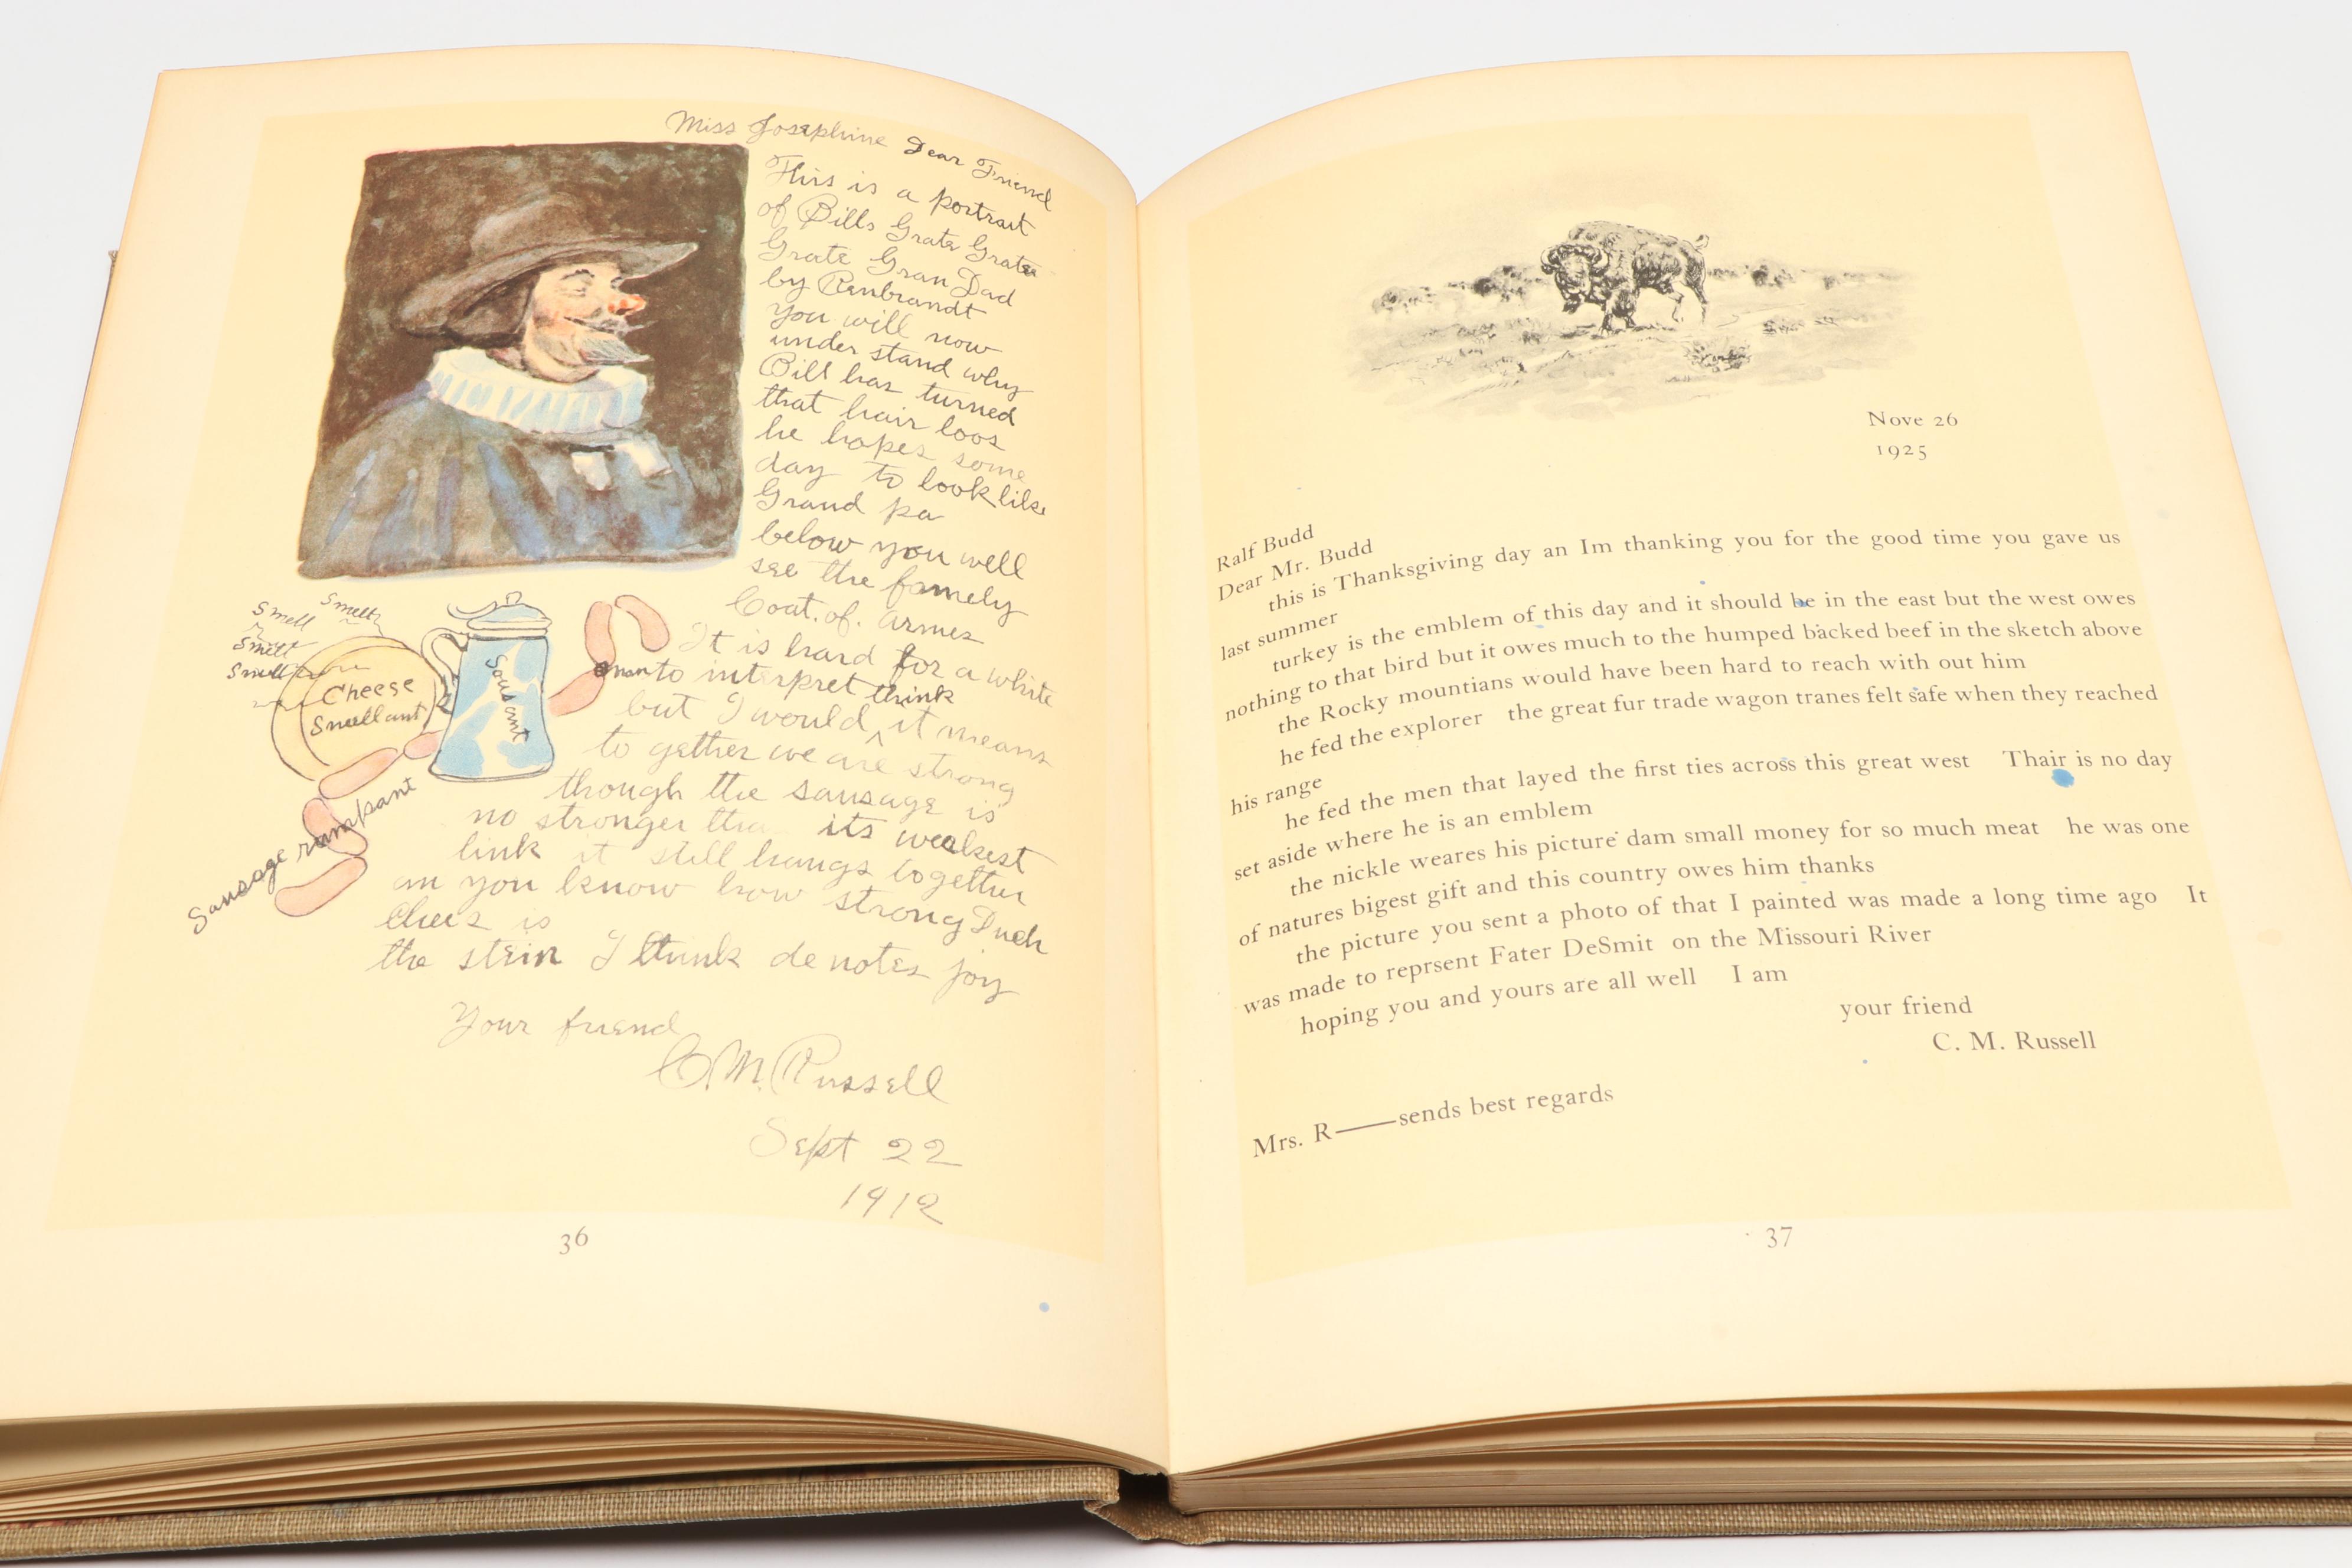 Miss Josephine Dear Friend
This is a portrait
of Bills Grate Grate
Grate Gran Dad
by Renbrandt
you will now
under stand why
Bill has turned
that hair loos
he hopes some
day to look like
Grand pa
below you well
see the famely
Coat. of. Armes
It is hard for a white
man to interpret
but I would think it means
to gether we are strong
though the sausage is
no stronger than its weakest
link it still hangs together
an you know how strong Duch
Chees is
the stein I think denotes joy
Your friend
C. M. Russell
Sept 22
1912
Smell
Smell
Smell
Smell
Cheese
Smellant
Sousant
Sausage rampant
36
Nove 26
1925
Ralf Budd
Dear Mr. Budd
this is Thanksgiving day an Im thanking you for the good time you gave us
last summer
turkey is the emblem of this day and it should be in the east but the west owes
nothing to that bird but it owes much to the humped backed beef in the sketch above
the Rocky mountians would have been hard to reach with out him
he fed the explorer the great fur trade wagon tranes felt safe when they reached
his range
he fed the men that layed the first ties across this great west Thair is no day
set aside where he is an emblem
the nickle weares his picture dam small money for so much meat he was one
of natures bigest gift and this country owes him thanks
the picture you sent a photo of that I painted was made a long time ago It
was made to reprsent Fater DeSmit on the Missouri River
hoping you and yours are all well I am
your friend
C. M. Russell
Mrs. R——sends best regards
37